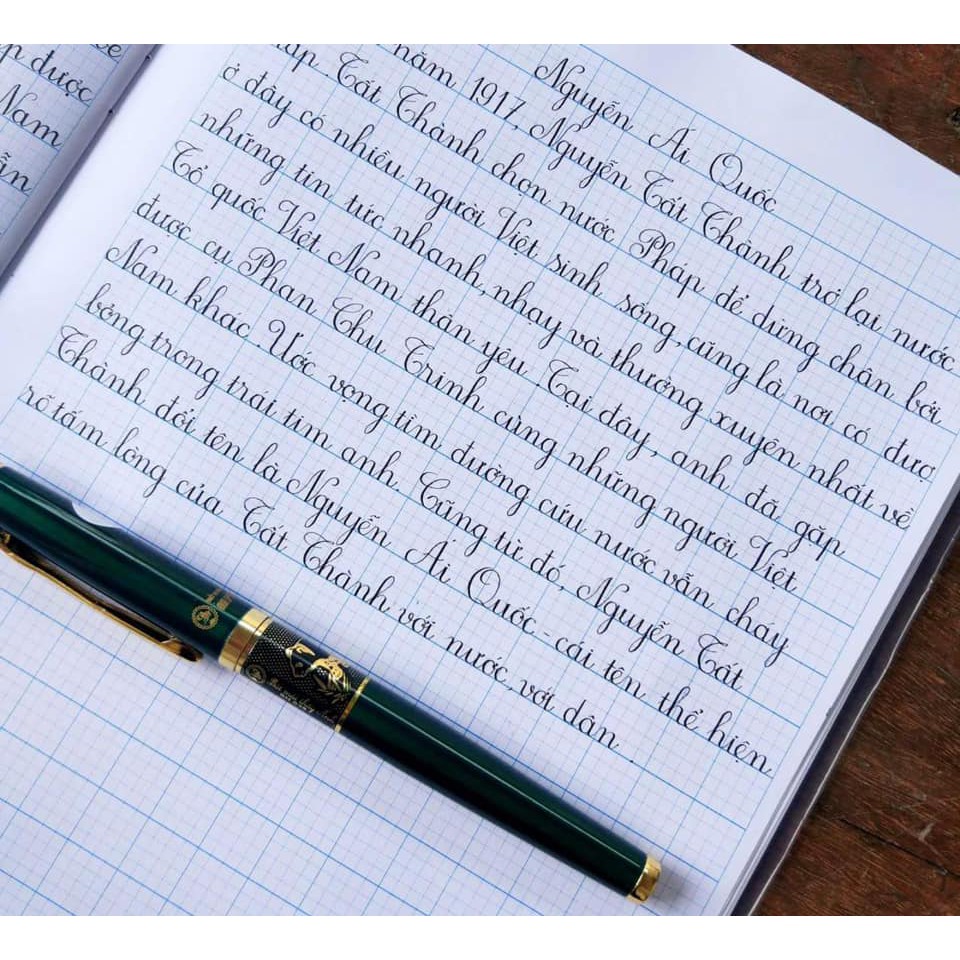 về
được
Nam
ẫn
Nguyễn Ái Quốc
năm 1917, Nguyễn Tất Thành trở lại nước
Pháp. Tất Thành chọn nước Pháp để dừng chân bởi
ở đây có nhiều người Việt sinh sống, cũng là nơi có được
những tin tức nhanh, nhạy và thường xuyên nhất về
Tổ quốc Việt Nam thân yêu. Tại đây, anh đã gặp
được cụ Phan Chu Trinh cùng những người Việt
Nam khác. Ước vọng tìm đường cứu nước vẫn cháy
bỏng trong trái tim anh. Cũng từ đó, Nguyễn Tất
Thành đổi tên là Nguyễn Ái Quốc - cái tên thể hiện
rõ tấm lòng của Tất Thành với nước, với dân.